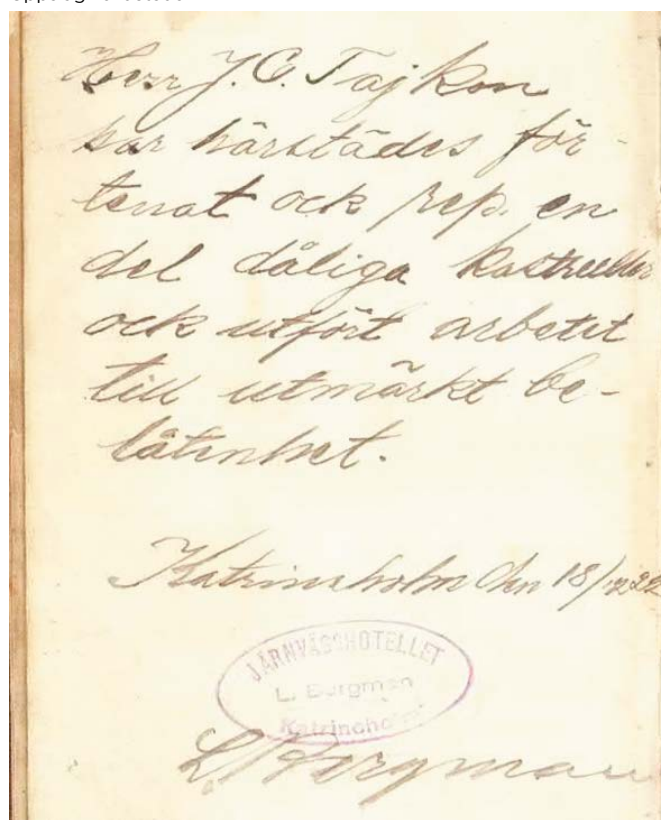 Herr J. C. Tajkon
har härstädes för-
tenat ock rep. en
del dåliga kastruller
ock utfört arbetet
till utmärkt be-
låtenhet.
Katrineholm den 18/12 22
JÄRNVÄGSHOTELLET
L. Bergman
Katrineholm
L. Bergman